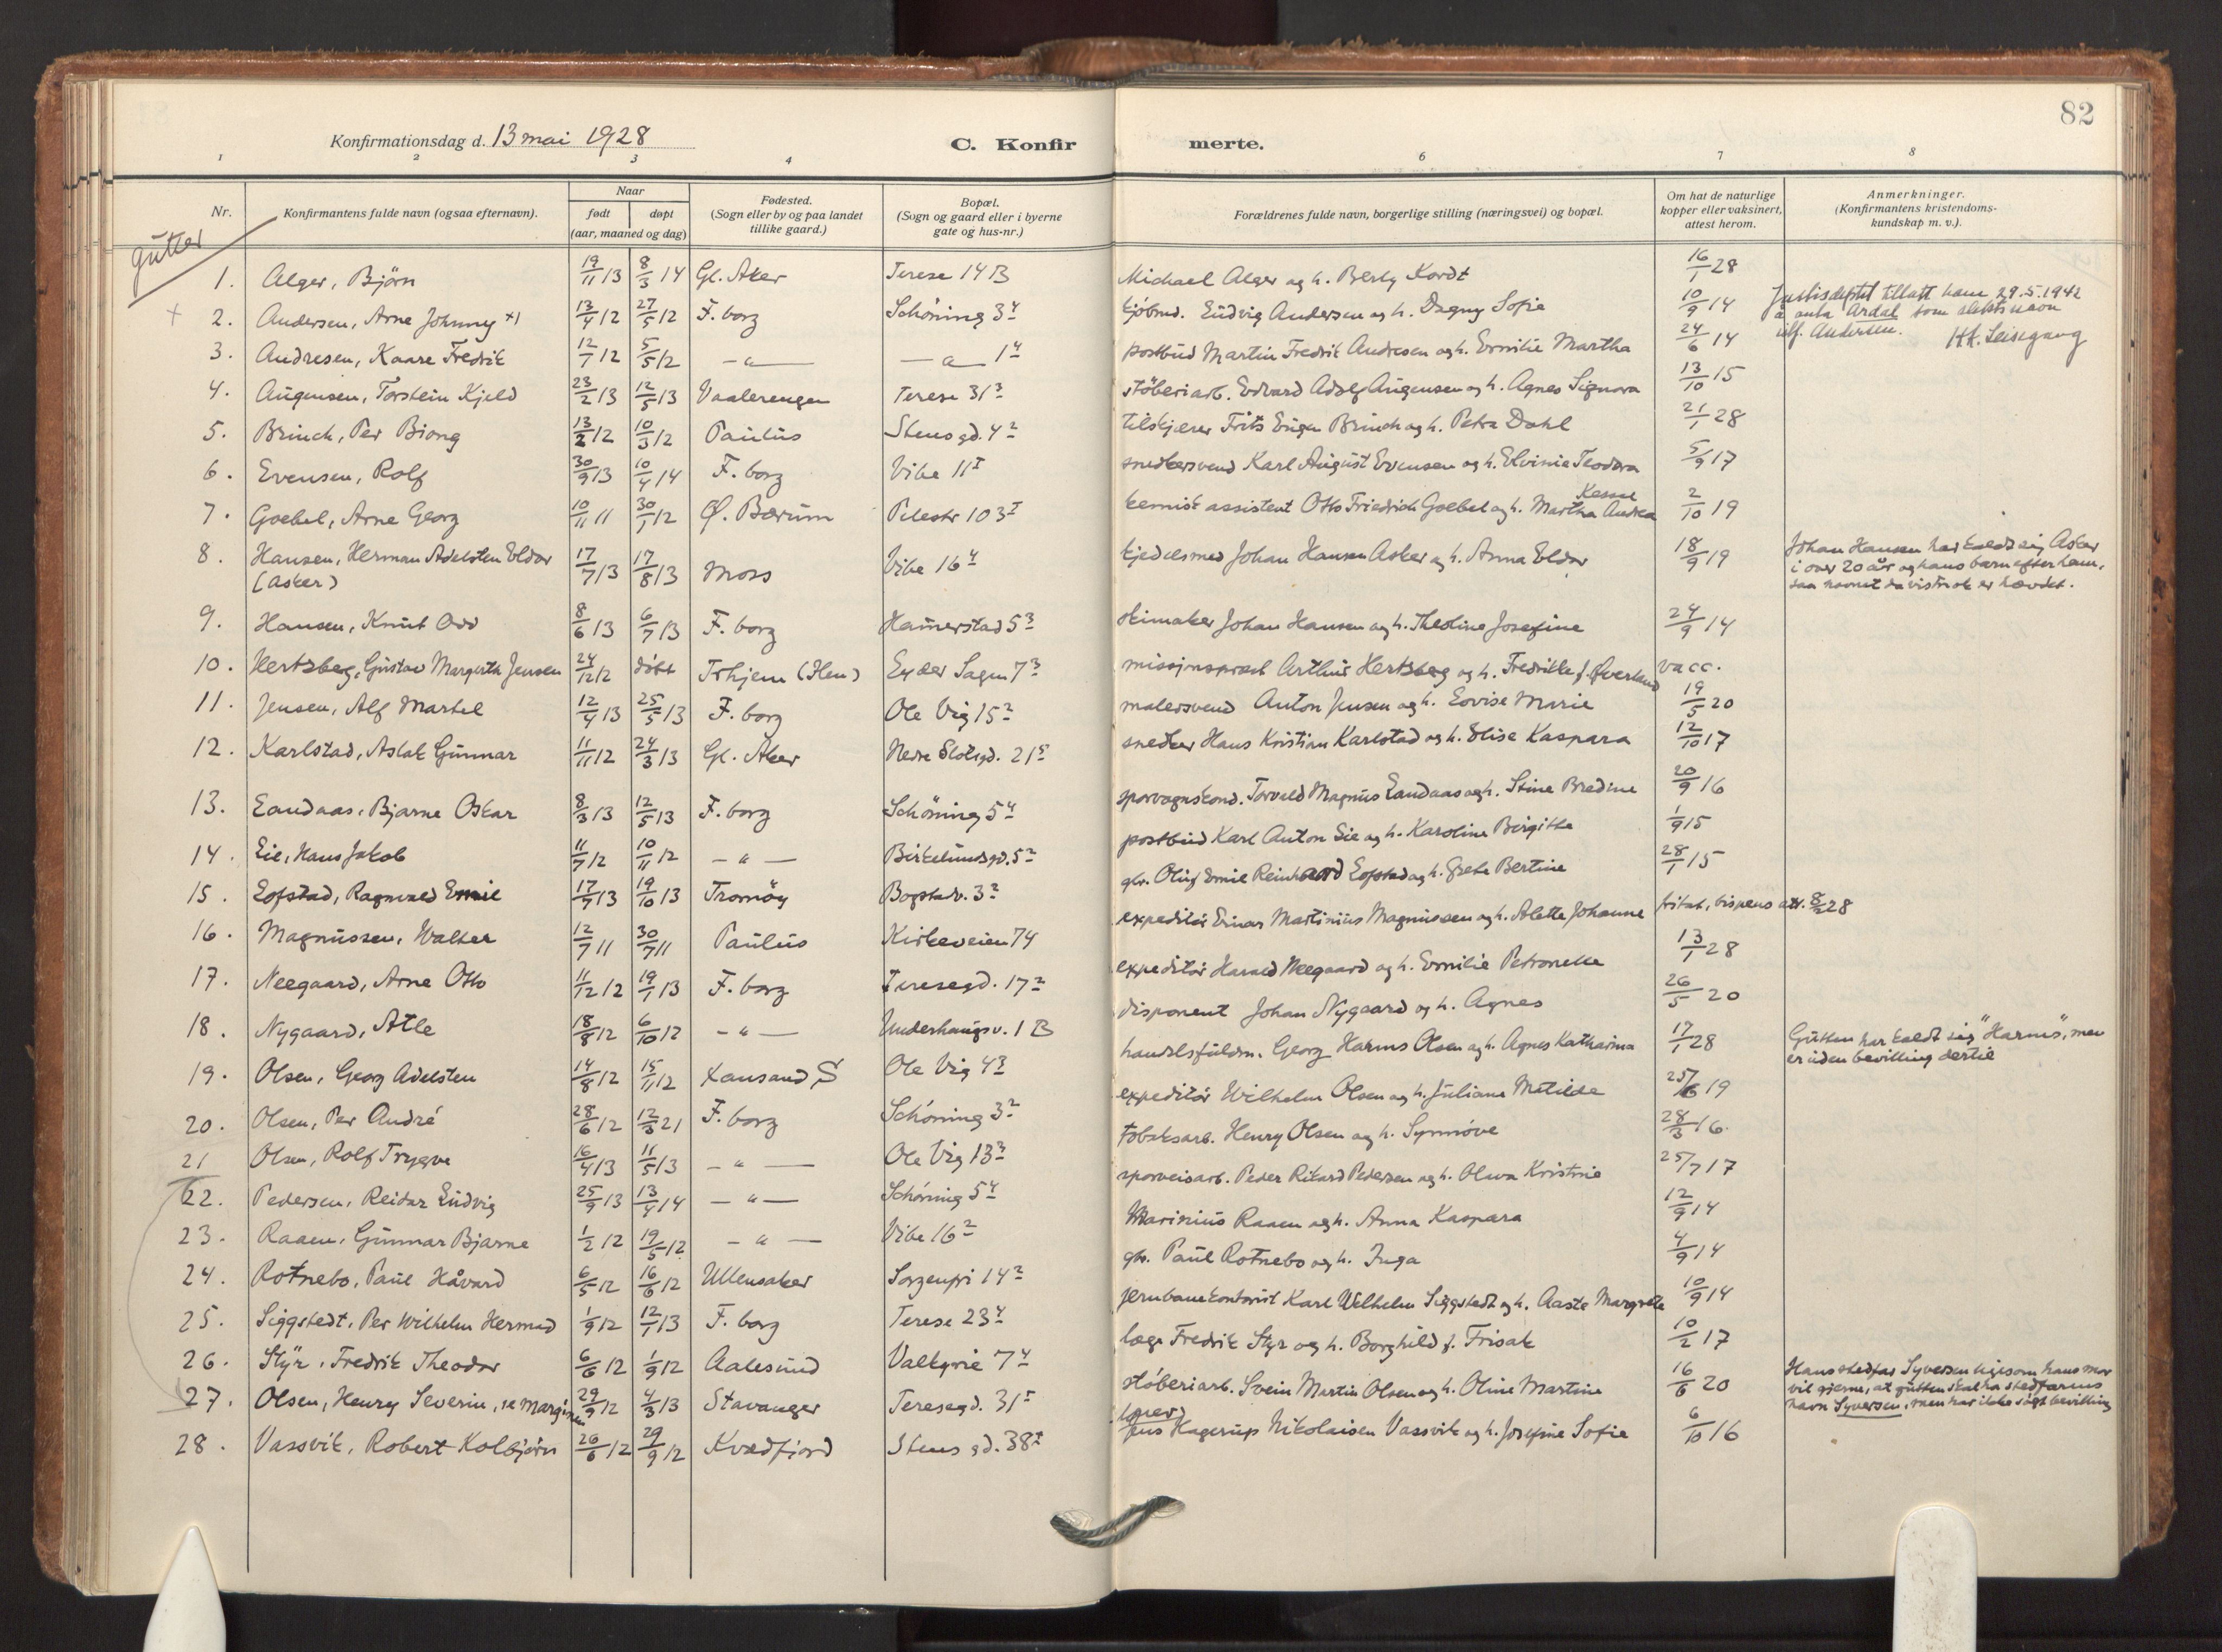 82
Konfirmationsdag d. 13 mai 1928
C. Konfir
merte.
1 2 3 4 6 7 8
Nr.
Konfirmantens fulde navn (ogsaa efternavn).
Naar
født døpt
(aar, maaned og dag)
Fødested.
(Sogn eller by og paa landet
tillike gaard.)
Bopæl.
(Sogn og gaard eller i byerne
gate og hus-nr.)
Forældrenes fulde navn, borgerlige stilling (næringsvei) og bopæl.
Om hat de naturlige
kopper eller vaksinert,
attest herom.
Anmerkninger.
(Konfirmantens kristendoms-
kundskap m. v.).
gutter
1. Alger, Bjørn 19/11 13 8/3 14 Gl. Aker Terese 14 B Michael Alger og h. Berly Kordt 16/1 28
+ 2. Andersen, Arne Johnny +) 13/4 12 27/5 12 F. borg Schøning 3 4 kjøbmd. Ludvig Andersen og h. Dagny Sofie 10/9 14 Justisdeptet tillatt ham 29.5.1942
å anta Årdal som slektsnavn
istf. Andersen. H.K. Leisegang
3. Andresen, Kaare Fredrik 12/7 12 5/5 12 — " — — " — 1 4 postbud Martin Fredrik Andresen og h. Emilie Martha 24/6 14
4. Augensen, Torstein Kjeld 23/2 13 12/5 13 Vaalerengen Terese 31 3 støberiarb. Edvard Adolf Augensen og h. Agnes Signora 13/10 15
5. Brinch, Per Biong 13/2 12 10/3 12 Paulus Stensgd. 4 2 tilskjærer Frits Brinch og h. Petra Dahl 21/1 28
6. Evensen, Rolf 30/9 13 10/4 14 F. borg Vibe 11 I snedkersvend Karl August Evensen og h. Elvinie Teodora 5/9 17
7. Goebel, Arne Georg 10/11 11 30/1 12 Ø. Bærum Pilestr 103 I kemisk assistent Otto Friedrich Goebel og h. Martha Andrea 2/10 19
8. Hansen, Herman Adelsten Eldor 17/7 13 17/8 13 Moss Vibe 16 4 kjedelsmed Johan Hansen Asker og h. Anna Eldor 18/9 19 Johan Hansen har kaldt sig Asker
(Asker) i over 20 år og hans barn efter ham,
saa navnet da vistnok er hævdet.
9. Hansen, Knut Odd 8/6 13 6/7 13 F. borg Hamerstad 5 3 skimaker Johan Hansen og h. Theoline Josefine 24/9 14
10. Hertzberg, Gustav Margerth Jensen 24/12 12 døbt Trhjem (Ilen) Eyder Sagen 7 3 missjonsprest Arthur Hertzberg og h. Fredrikke f. Øverland vacc.
11. Jensen, Alf Martel 12/4 13 25/5 13 F. borg Ole Vig 15 2 malersvend Anton Jensen og h. Lovise Marie 19/5 20
12. Karlstad, Aslak Gunnar 11/11 12 24/3 13 Gl. Aker Nedre Slotsgd. 21 5 snedker Hans Kristian Karlstad og h. Elise Kaspara 12/10 17
13. Landaas, Bjarne Oskar 8/3 13 12/5 13 F. borg Schøning 5 4 sporvognskond. Torvald Magnus Landaas og h. Stine Bredine 20/9 16
14. Lie, Hans Jakob 11/7 12 10/11 12 — " — Birkelundsgd. 5 2 postbud Karl Anton Lie og h. Karoline Birgitte 1/9 15
15. Lofstad, Ragnvald Emil 17/7 13 19/10 13 Tromøy Bogstadv. 3 2 gbr. Oluf Emil Reinhard Lofstad og h. Grete Bertine 28/1 15
16. Magnussen, Walter 12/7 11 30/7 11 Paulus Kirkeveien 74 expeditør Einar Martinius Magnussen og h. Alette Johanne fritat, bispens att. 8/2 28
17. Neegaard, Arne Otto 11/12 12 19/1 13 F. borg Teresegd. 17 2 expeditør Harald Neegaard og h. Emilie Petronelle 13/1 28
18. Nygaard, Atle 18/8 12 6/10 12 — " — Underhaugsv. 1 B disponent Johan Nygaard og h. Agnes 26/5 20
19. Olsen, Georg Adelsten 14/8 12 15/11 12 Kansand S Ole Vig 4 3 handelsfuldm. Georg Harms Olsen og h. Agnes Katharina 17/1 28 Gutten har kaldt sig "Harms", men
er uden bevilling dertil
20. Olsen, Per André 28/6 12 12/3 21 F. borg Schøning 3 2 expeditør Wilhelm Olsen og h. Juliane Matilde 25/6 19
21 Olsen, Rolf Trygve 16/4 13 11/5 13 — " — Ole Vig 13 3 tobaksarb. Henry Olsen og h. Synnøve 28/3 16.
22. Pedersen, Reidar Ludvig 25/9 13 13/4 14 — " — Schøning 5 4 sporveisarb. Peder Rikard Pedersen og h. Olava Kristine 25/7 17
23. Raaen, Gunnar Bjarne 1/2 12 19/5 12 — " — Vibe 16 2 Marinius Raaen og h. Anna Kaspara 12/9 14
24. Rotnebo, Paul Håvard 6/5 12 16/6 12 Ullensaker Sorgenfri 14 2 gbr. Paul Rotnebo og h. Inga 4/9 14
25. Siggstedt, Per Wilhelm Hermod 1/9 12 12/1 13 F. borg Terese 23 4 jernbanekontorist Karl Wilhelm Siggstedt og h. Aasta Margrete 10/9 14
26. Styr, Fredrik Theodor 6/6 12 1/9 12 Aalesund Valkyrie 7 4 læge Fredrik Styr og h. Borghild f. Frisak 10/2 17
27. Olsen, Henry Severin, se marginen 29/9 12 4/3 13 Stavanger Teresegd. 31 I støberiarb. Svein Martin Olsen og h. Oline Martine 16/6 20 Hans stedfar Syversen ligesom hans mor
vil gjerne, at gutten skal ha stedfarens
navn Syversen, men har ikke søgt bevilling
28. Vassvik, Robert Kolbjørn 26/6 12 29/9 12 Kvædfjord Stens gd. 38 I Jens Hagerup Nikolaisen Vassvik og h. Josefine Sofie 6/10 16